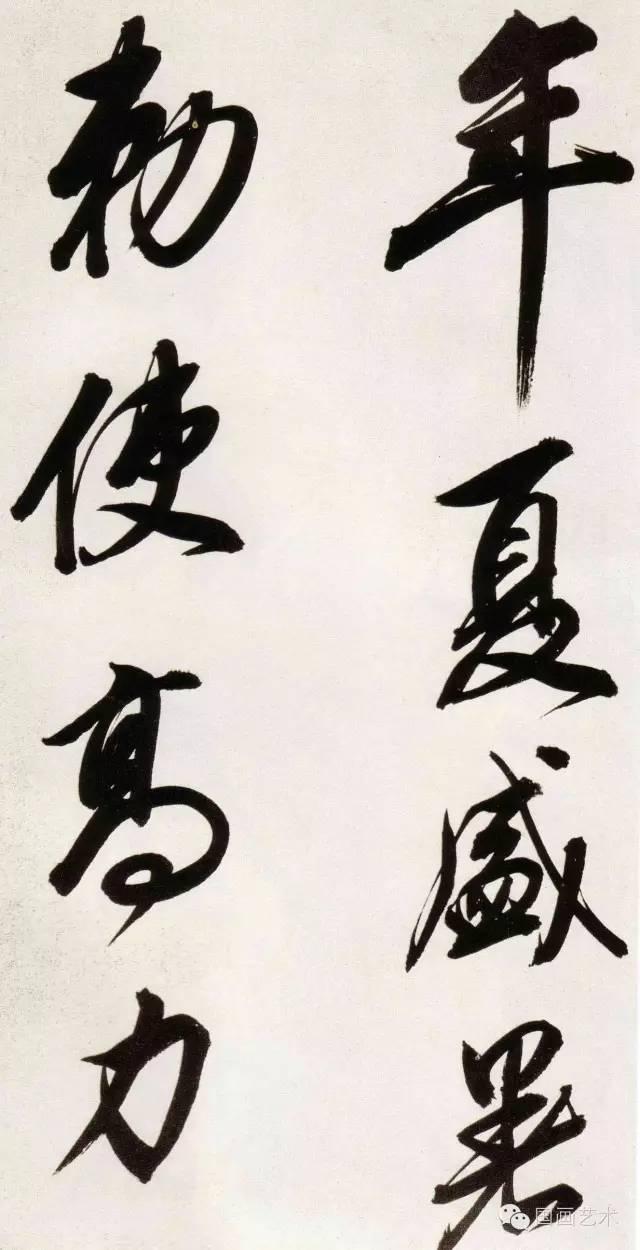 年夏盛暑
勑使高力
国画艺术